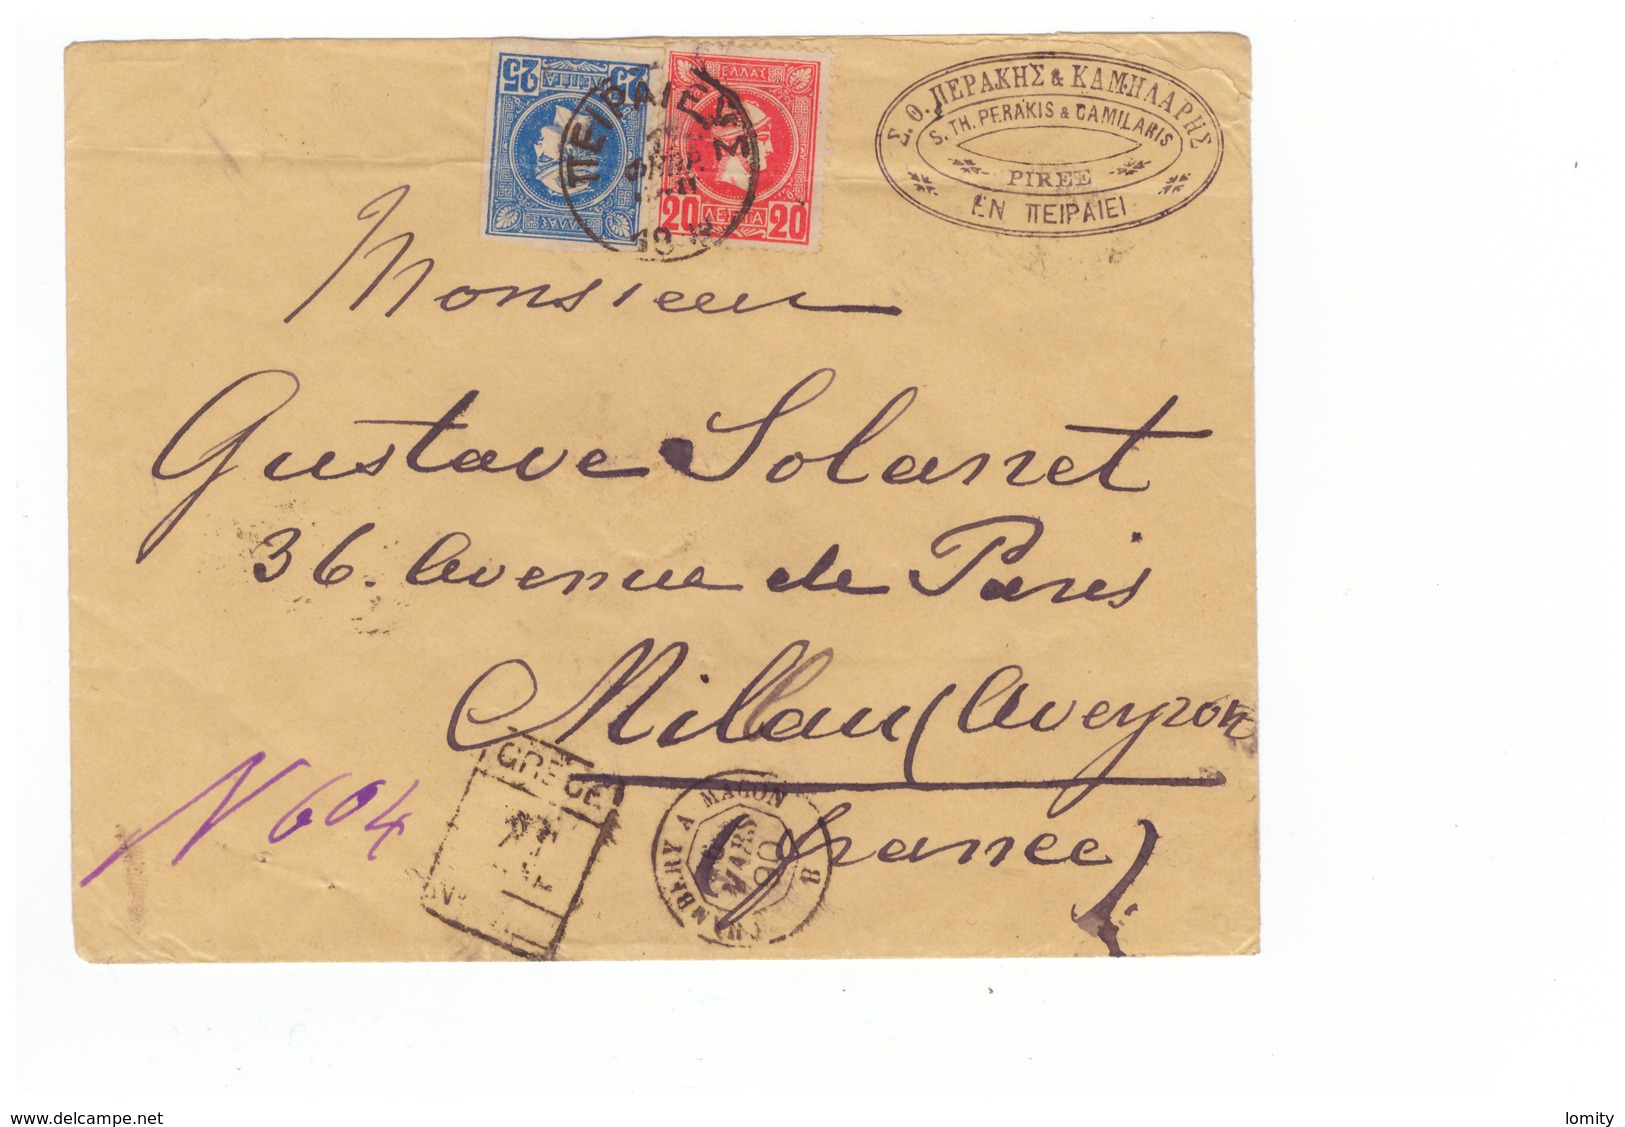 25 25
ΛΕΠΤΑ
ΕΛΛΑΣ
ΕΛΛΑΣ
20 ΛΕΠΤΑ 20
ΠΕΙΡΑΙΕΥΣ
Σ. Θ. ΠΕΡΑΚΗΣ & ΚΑΜΗΛΑΡΗΣ
S. TH. PERAKIS & CAMILARIS
PIREE
ΕΝ ΠΕΙΡΑΙΕΙ
Monsieur
Gustave Solanet
36. Avenue de Paris
Millau (Aveyron
(France)
N 604
GRECE
CHAMBERY A MACON
MARS
00
B
www.delcampe.net
lomity